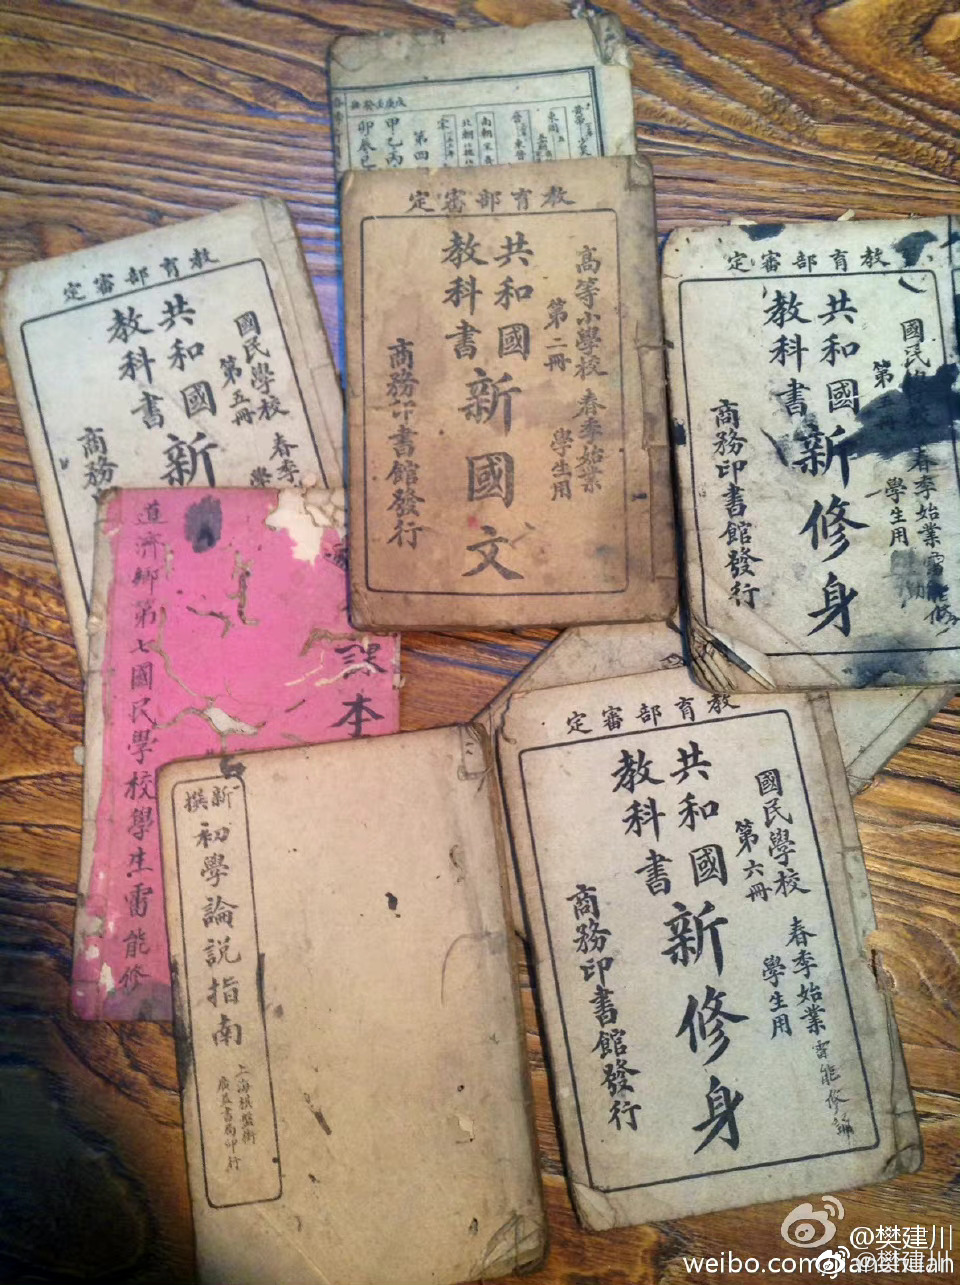 甲乙丙
第四
教育部審定
高等小學校 春季始業
第二冊 學生用
共和國
教科書
新國文
商務印書館發行
教育部審定
國民學校 春季
第五冊
共和國
教科書
新
商務
教育部審定
國民
春季始業
第
學生用
共和國
教科書
新修身
商務印書館發行
雷能修
課本
道濟鄉第七國民學校學生雷能修
新撰
初學論説指南
上海棋盤街
廣益書局印行
教育部審定
國民學校 春季始業
第六冊 學生用
共和國
教科書
新修身
商務印書館發行
雷能修
@樊建川
weibo.com/jianchuan
@樊建川